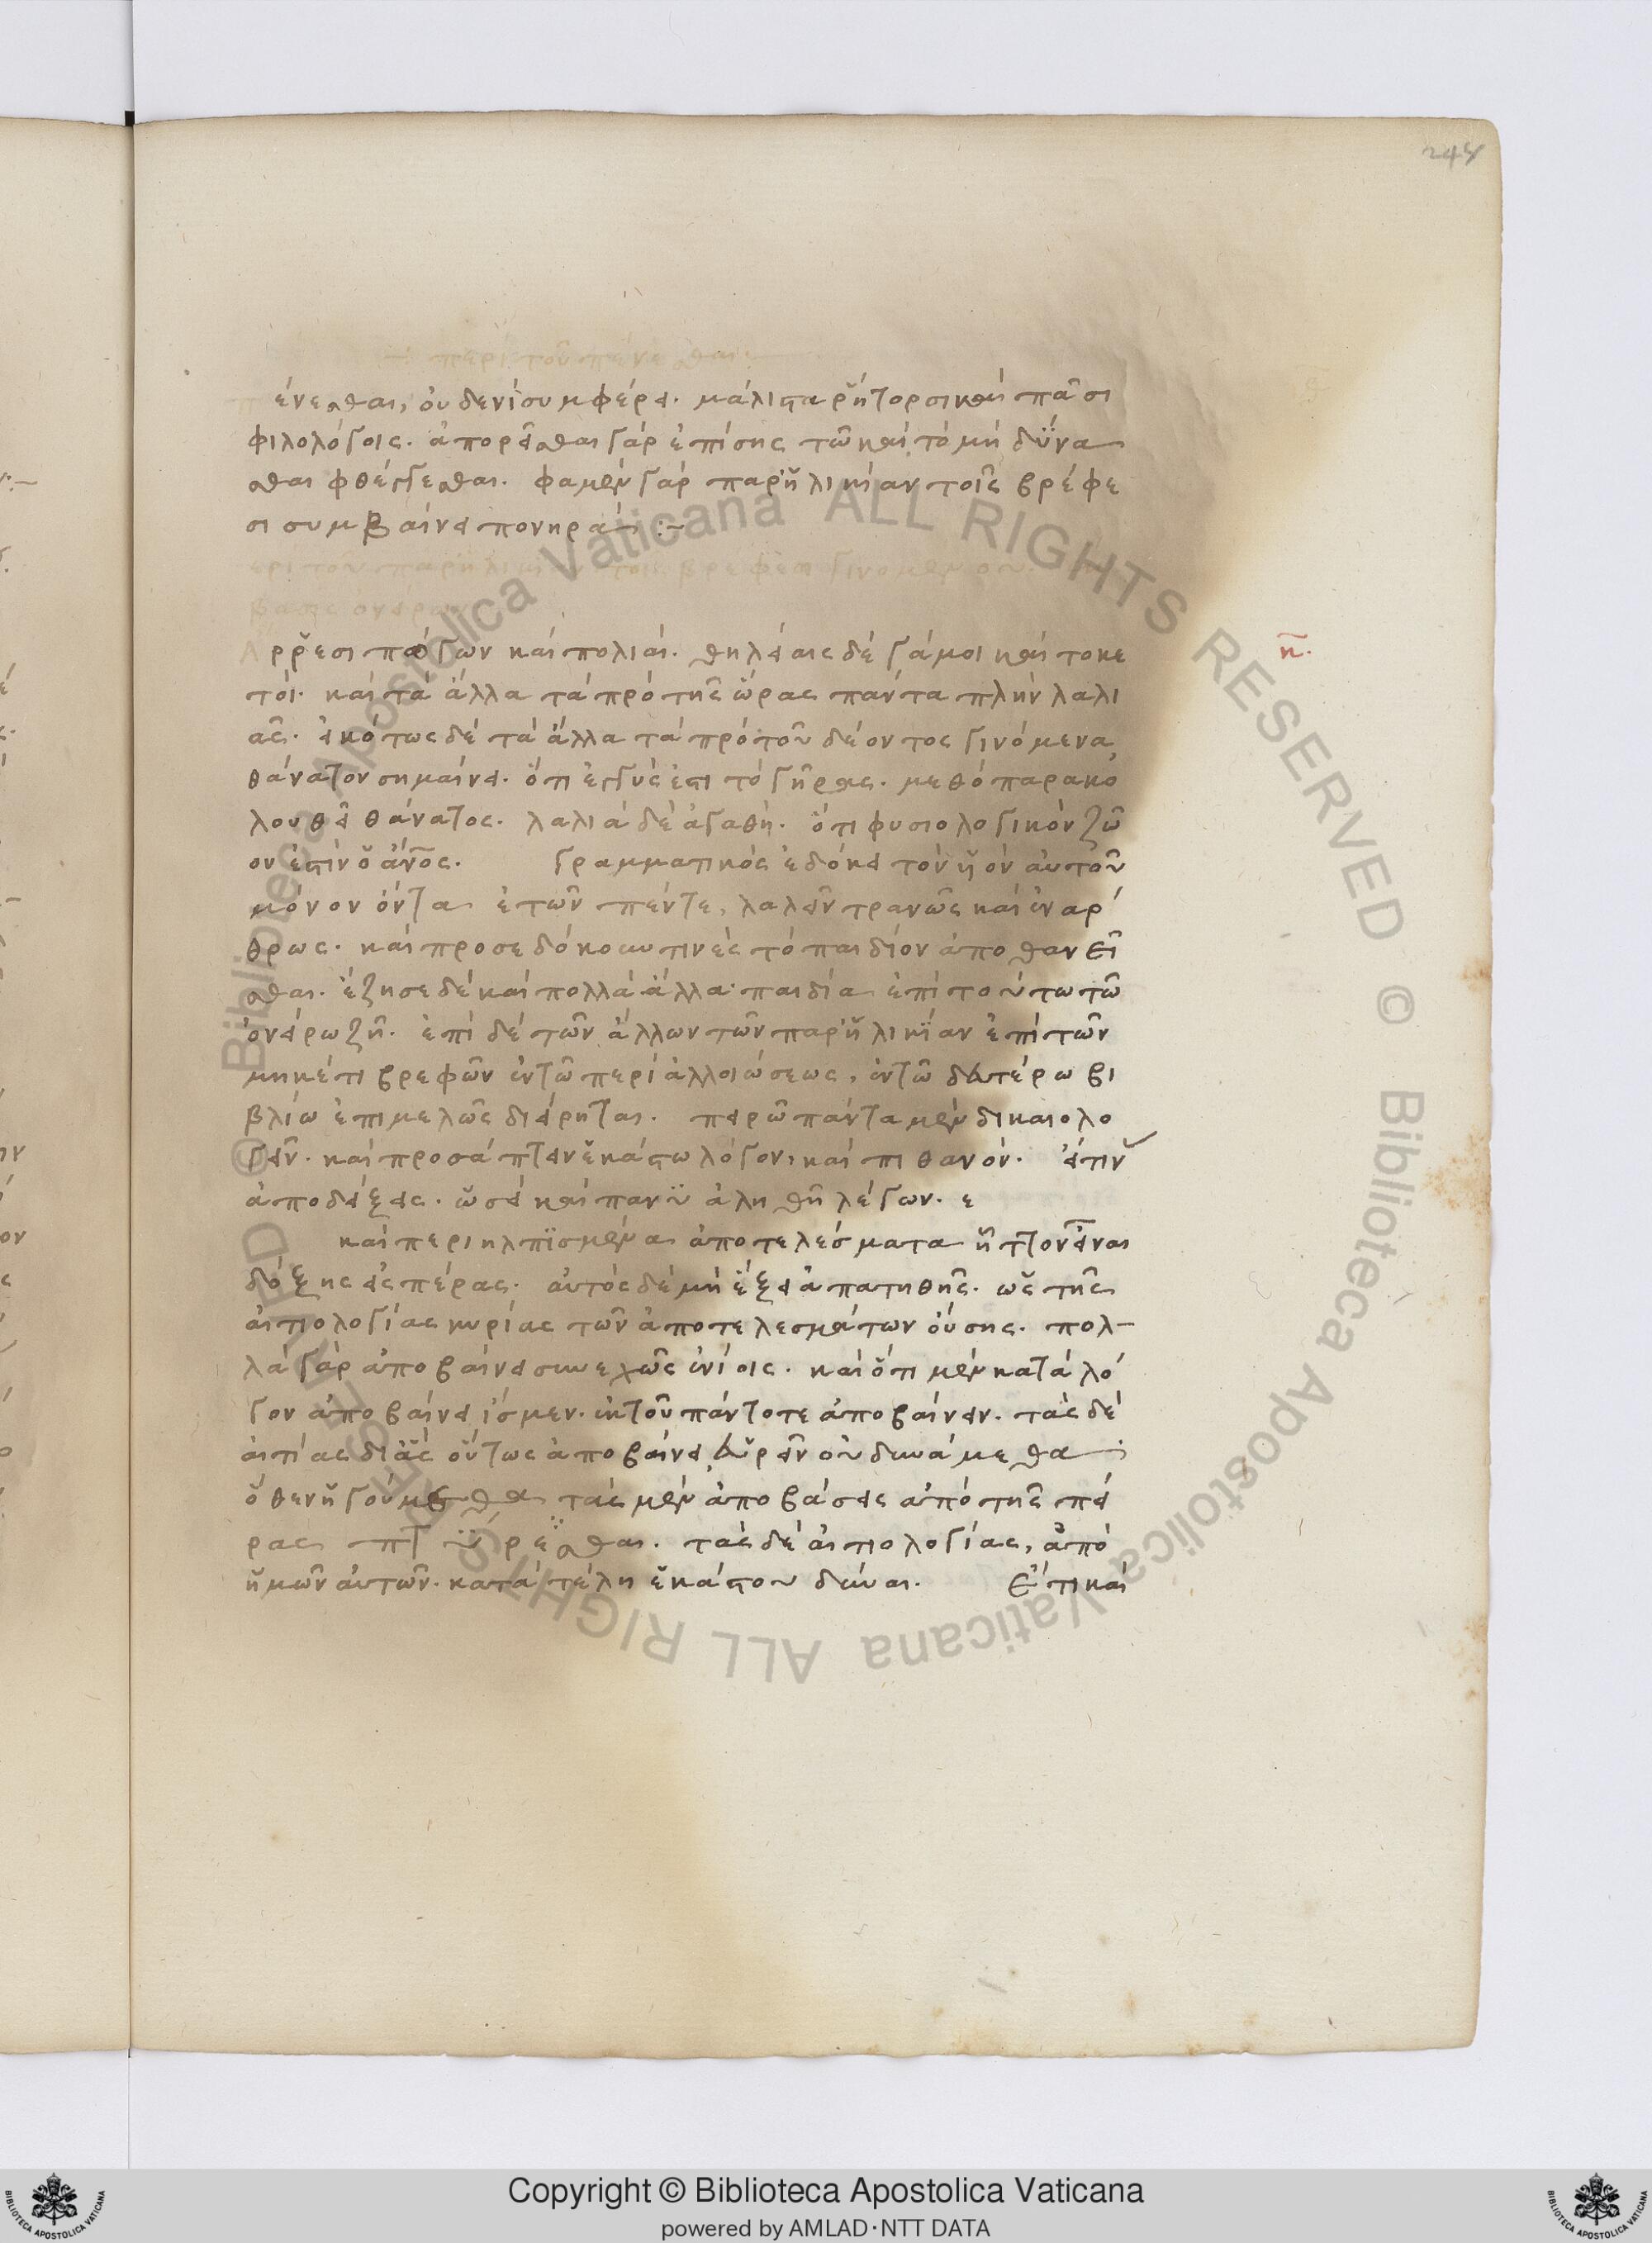 244
περὶ τοῦ πένεσθαι
ένεσθαι, ουδενὶ συμφέρει. μάλιστα ῥήτορσι καὶ πᾶσι
φιλολόγοις. ἀπορεῖσθαι γάρ ἐπίσης τῶ καὶ τὸ μὴ δύνα
σθαι φθέγγεσθαι. φαμὲν γάρ παρηλικίαν τοῖς βρέφε
σι συμβαίνει πονηρά :~
ερι τοῦ παρηλικίαν τοῖς βρέφεσι γινομένου.
βασις ονείρων
Αρρεσι πώγων καὶ πολιαί. θηλείαις δὲ γάμοι καὶ τοκε
τόι. καὶ τὰ ἄλλα τὰ πρὸ τῆς ὥρας πάντα πλὴν λαλι
ας. εἰκότως δὲ τὰ ἄλλα τὰ πρὸ τοῦ δέοντος γινόμενα
θάνατον σημαίνει. ὅτι ἐγγύς ἐστι τὸ γῆρας. μεθ ὃ παρακό
λουθεῖ θάνατος. λαλιά δὲ ἀγαθή. ὅτι φυσιολογικὸν ζῶ
ον ἐστὶν ὁ ἄνος. γραμματικὸς ἐδόκει τὸν ὑὸν αὐτοῦ
μόνον ὄντα ἐτῶν πέντε, λαλεῖν τρανῶς καὶ ἐναρ
θρως. καὶ προσεδόκουν τινὲς τὸ παιδίον ἀποθανεῖ
σθαι. ἔζησε δὲ καὶ πολλὰ ἄλλα παιδία ἐπὶ τούτω τῶ
ὀνείρω ζῆ. ἐπὶ δὲ τῶν ἄλλων τῶν παρηλικίαν ἐπὶ τῶν
μηκέτι βρεφῶν ἐν τῶ περὶ ἀλλοιώσεως, ἐν τῶ δευτέρω βι
βλίω ἐπιμελῶς διείρηται. πειρῶ πάντα μὲν δικαιολο
γεῖν. καὶ προσάπτειν ἑκάστω λόγον, καὶ πιθανόν.
ἀποδείξεις. ὡς εἰ καὶ πανὺ ἀληθῆ λέγων. ε
καὶ περι ηλπισμένα ἀποτελέσματα ἧττον εἶναι
δόξης εἰς πέρας. αὐτὸς δὲ μὴ ἐξαπατηθῆς. ὡς τῆς
αἰτιολογίας κυρίας τῶν ἀποτελεσμάτων οὔσης. πολ-
λὰ γάρ ἀποβαίνει συνεχῶς ἐνίοις. καὶ ὅτι μὲν κατὰ λό
γον ἀποβαίνει ἴσμεν. ἐκ τοῦ πάντοτε ἀποβαίνειν. τὰς δὲ
αἰτίας δι ἃς οὕτως ἀποβαίνει, εὑρεῖν οὐ δυνάμεθα
ὅθεν ἡγούμεθα τὰς μὲν ἀποβάσεις ἀπὸ τῆς πεί
ρας σθαι. τὰς δὲ αἰτιολογίας, ἀπὸ
ἡμῶν αὐτῶν. κατὰ τέλη ἑκάστου δύναι. Ετι καὶ
η.